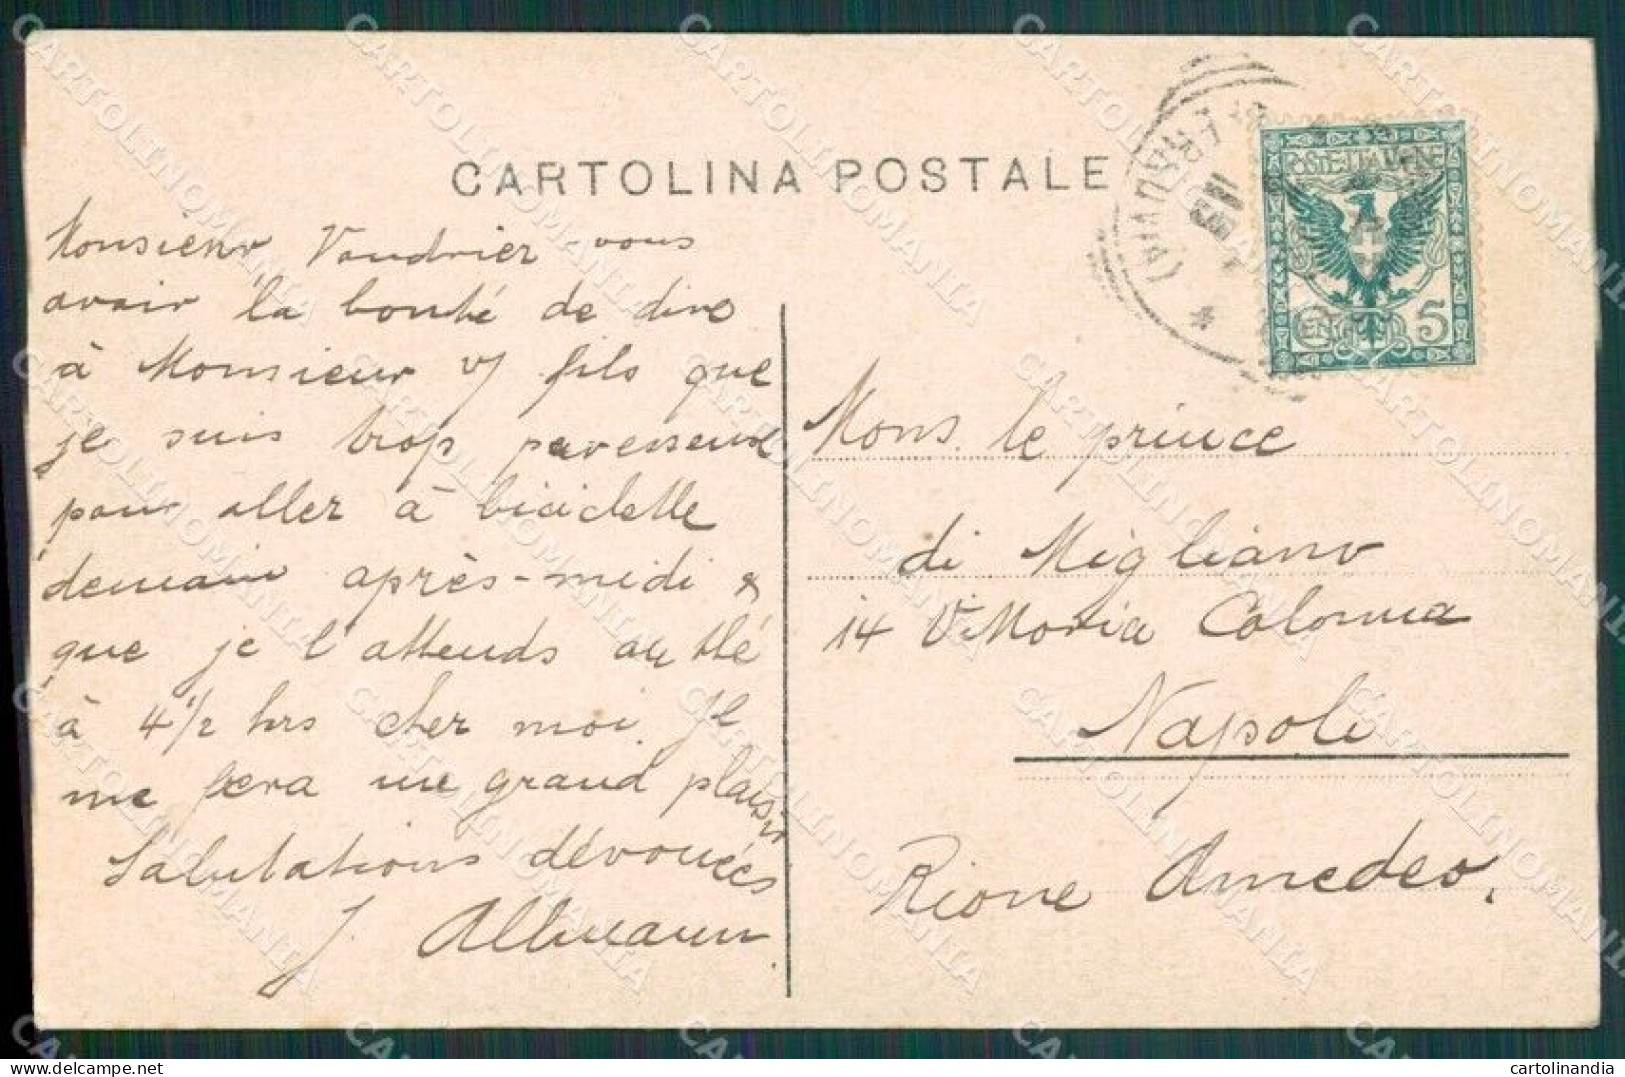 CARTOLINA POSTALE
POSTE ITALIANE
CENT. 5
Monsieur Vaudrier - vous
avair la bonté de dire
à Monsieur v/ fils que
je suis trop paresseux
pour aller à biciclette
demain après-midi &
que je l'attends au thé
à 4 1/2 hrs cher moi. Il
me fera une grand plaisir
Salutations dévouées
J. Allmann.
Mons. le prince
di Migliano
14 Vittoria Colonna
Napoli
Rione Amedeo.
CARTOLINOMANIA
delcampe.net
cartolinandia